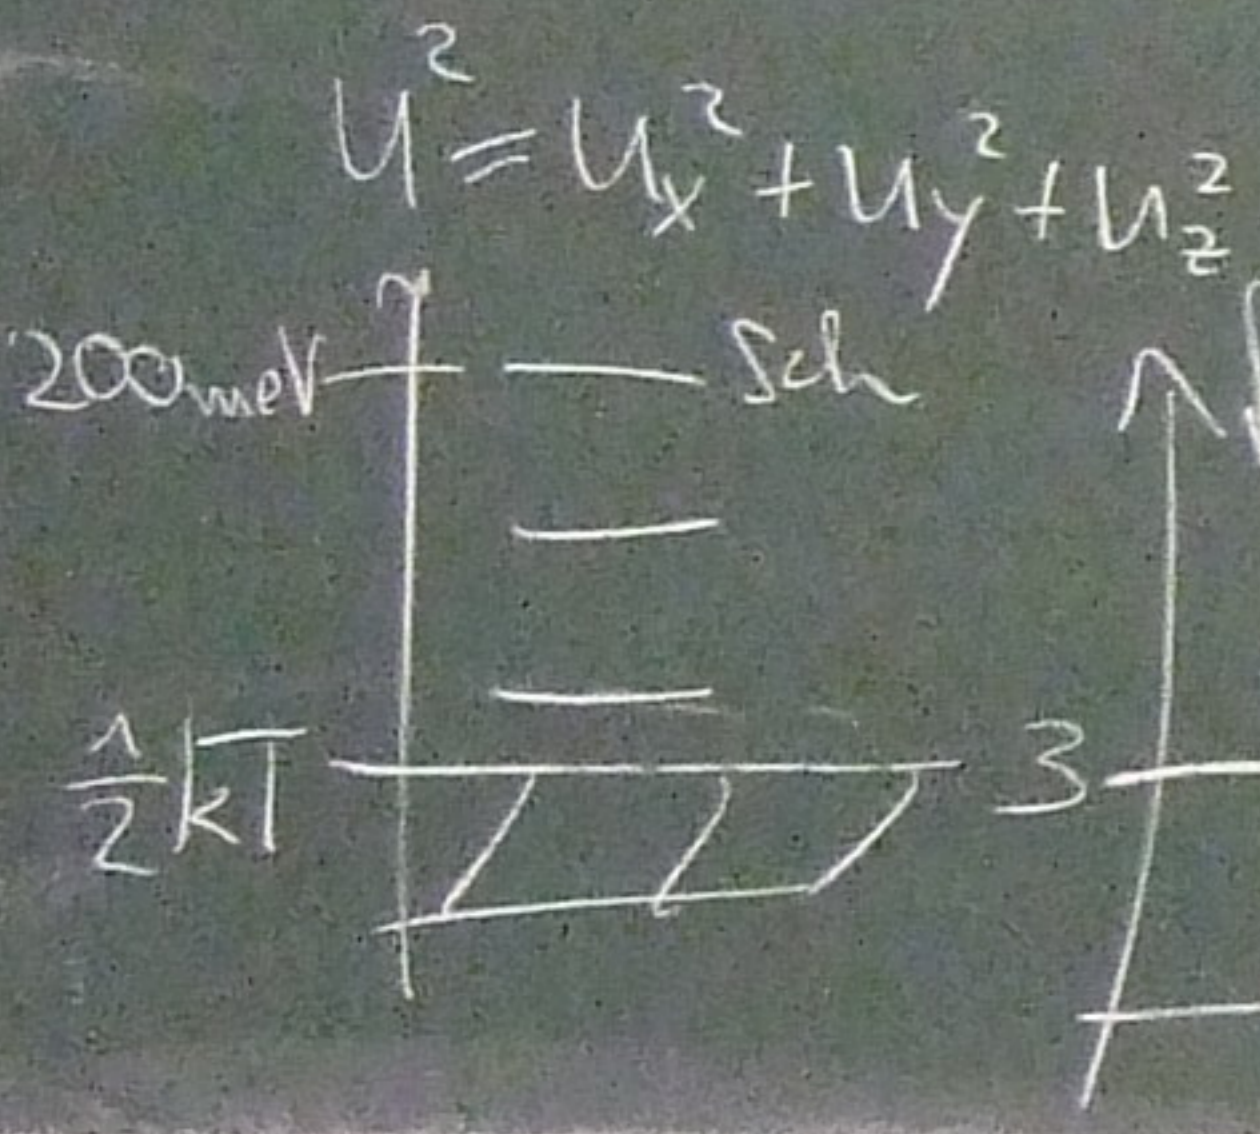 u² = u_x² + u_y² + u_z²
200meV Sch
1/2 kT 3